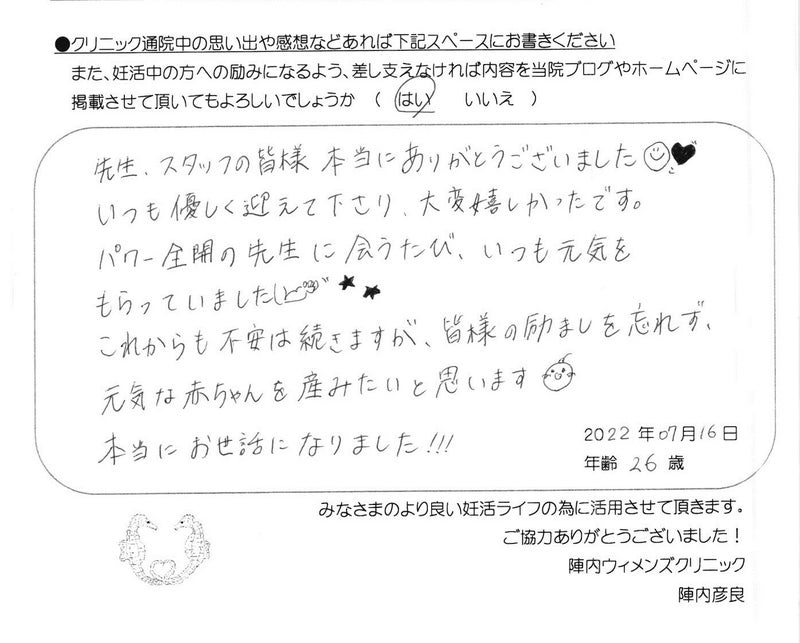 ●クリニック通院中の思い出や感想などあれば下記スペースにお書きください
また、妊活中の方への励みになるよう、差し支えなければ内容を当院ブログやホームページに
掲載させて頂いてもよろしいでしょうか （ はい いいえ ）
先生、スタッフの皆様 本当にありがとうございました
いつも優しく迎えて下さり、大変嬉しかったです。
パワー全開の先生に会うたび、いつも元気を
もらっていました
これからも不安は続きますが、皆様の励ましを忘れず、
元気な赤ちゃんを産みたいと思います
本当にお世話になりました!!!
2022 年 07月 16日
年齢 26 歳
みなさまのより良い妊活ライフの為に活用させて頂きます。
ご協力ありがとうございました！
陣内ウィメンズクリニック
陣内彦良